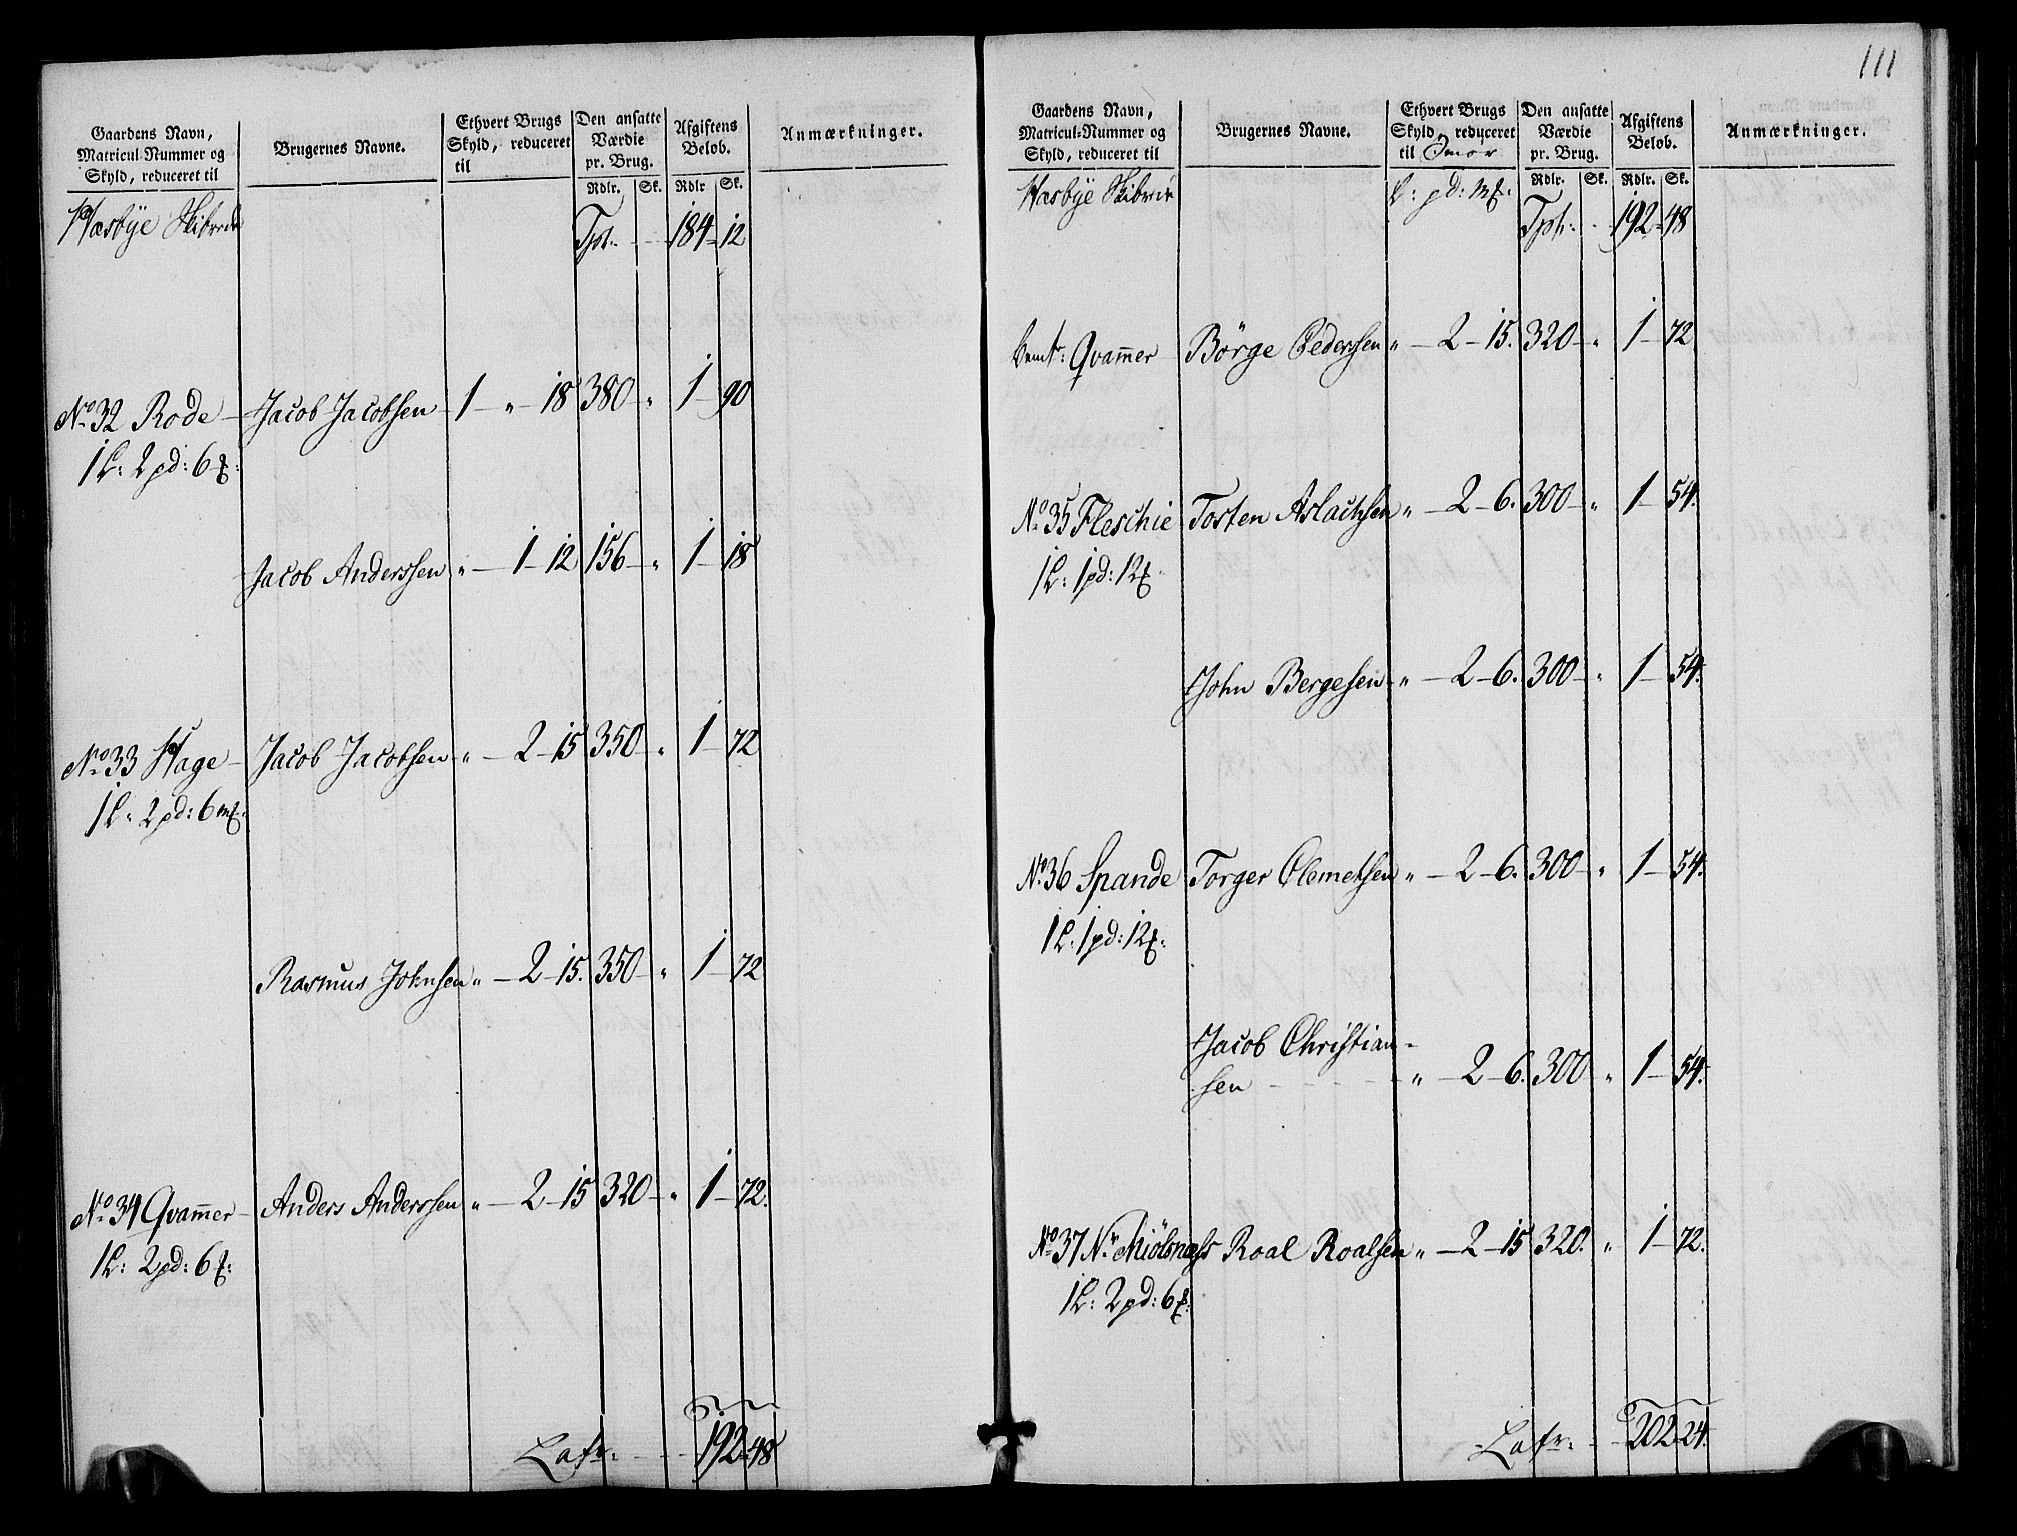 111
Gaardens Navn, Matricul-Nummer og Skyld, reduceret til
Brugernes Navne.
Ethvert Brugs Skyld, reduceret til
Den ansatte Værdie pr. Brug.
Afgiftens Beløb.
Anmærkninger.
Rdlr. Sk. Rdlr Sk.
Hæsbÿe Skibrede
Tpt: 184 - 12
No 32 Rode - Jacob Jacobsen 1 - " - 18 380 - " 1 - 90
1 L: 2 pd: 6
Jacob Anderssen " - 1 - 12 156 - " 1 - 18
No 33 Hage - Jacob Jacobsen " - 2 - 15 350 - " 1 - 72
1 L: 2 pd: 6 m
Rasmus Johnsen " - 2 - 15. 350 - " 1 - 72
No 34 Qvam̅er - Anders Anderssen " - 2 - 15 320 - " 1 - 72.
1 L: 2 pd: 6
Lafr: 192 - 48
Gaardens Navn, Matricul-Nummer og Skyld, reduceret til
Brugernes Navne.
Ethvert Brugs Skyld, reduceret til Smør
Den ansatte Værdie pr. Brug.
Afgiftens Beløb.
Anmærkninger.
Rdlr. Sk. Rdlr. Sk.
Hæsbÿe Skibrede
L: pd: m
Tpt: 192 - 48
Qvam̅er Börge Pederssen " - 2 - 15. 320 - " 1 - 72
No 35 Fleschie Tosten Aslachsen " - 2 - 6. 300 - " 1 - 54.
1 L: 1 pd: 12
John Bergesen - " - 2 - 6. 300 - " 1 - 54.
No 36 Spande Torger Clemetsen " - 2 - 6. 300 - " 1 - 54.
1 L: 1 pd: 12
Jacob Christian-
sen - " - 2 - 6. 300 " 1 - 54.
No 37 Nr Miölsnæss Roal Roalsen " - 2 - 15 320. " 1 - 72.
1 L: 2 pd: 6
Lafr: 202 - 24.